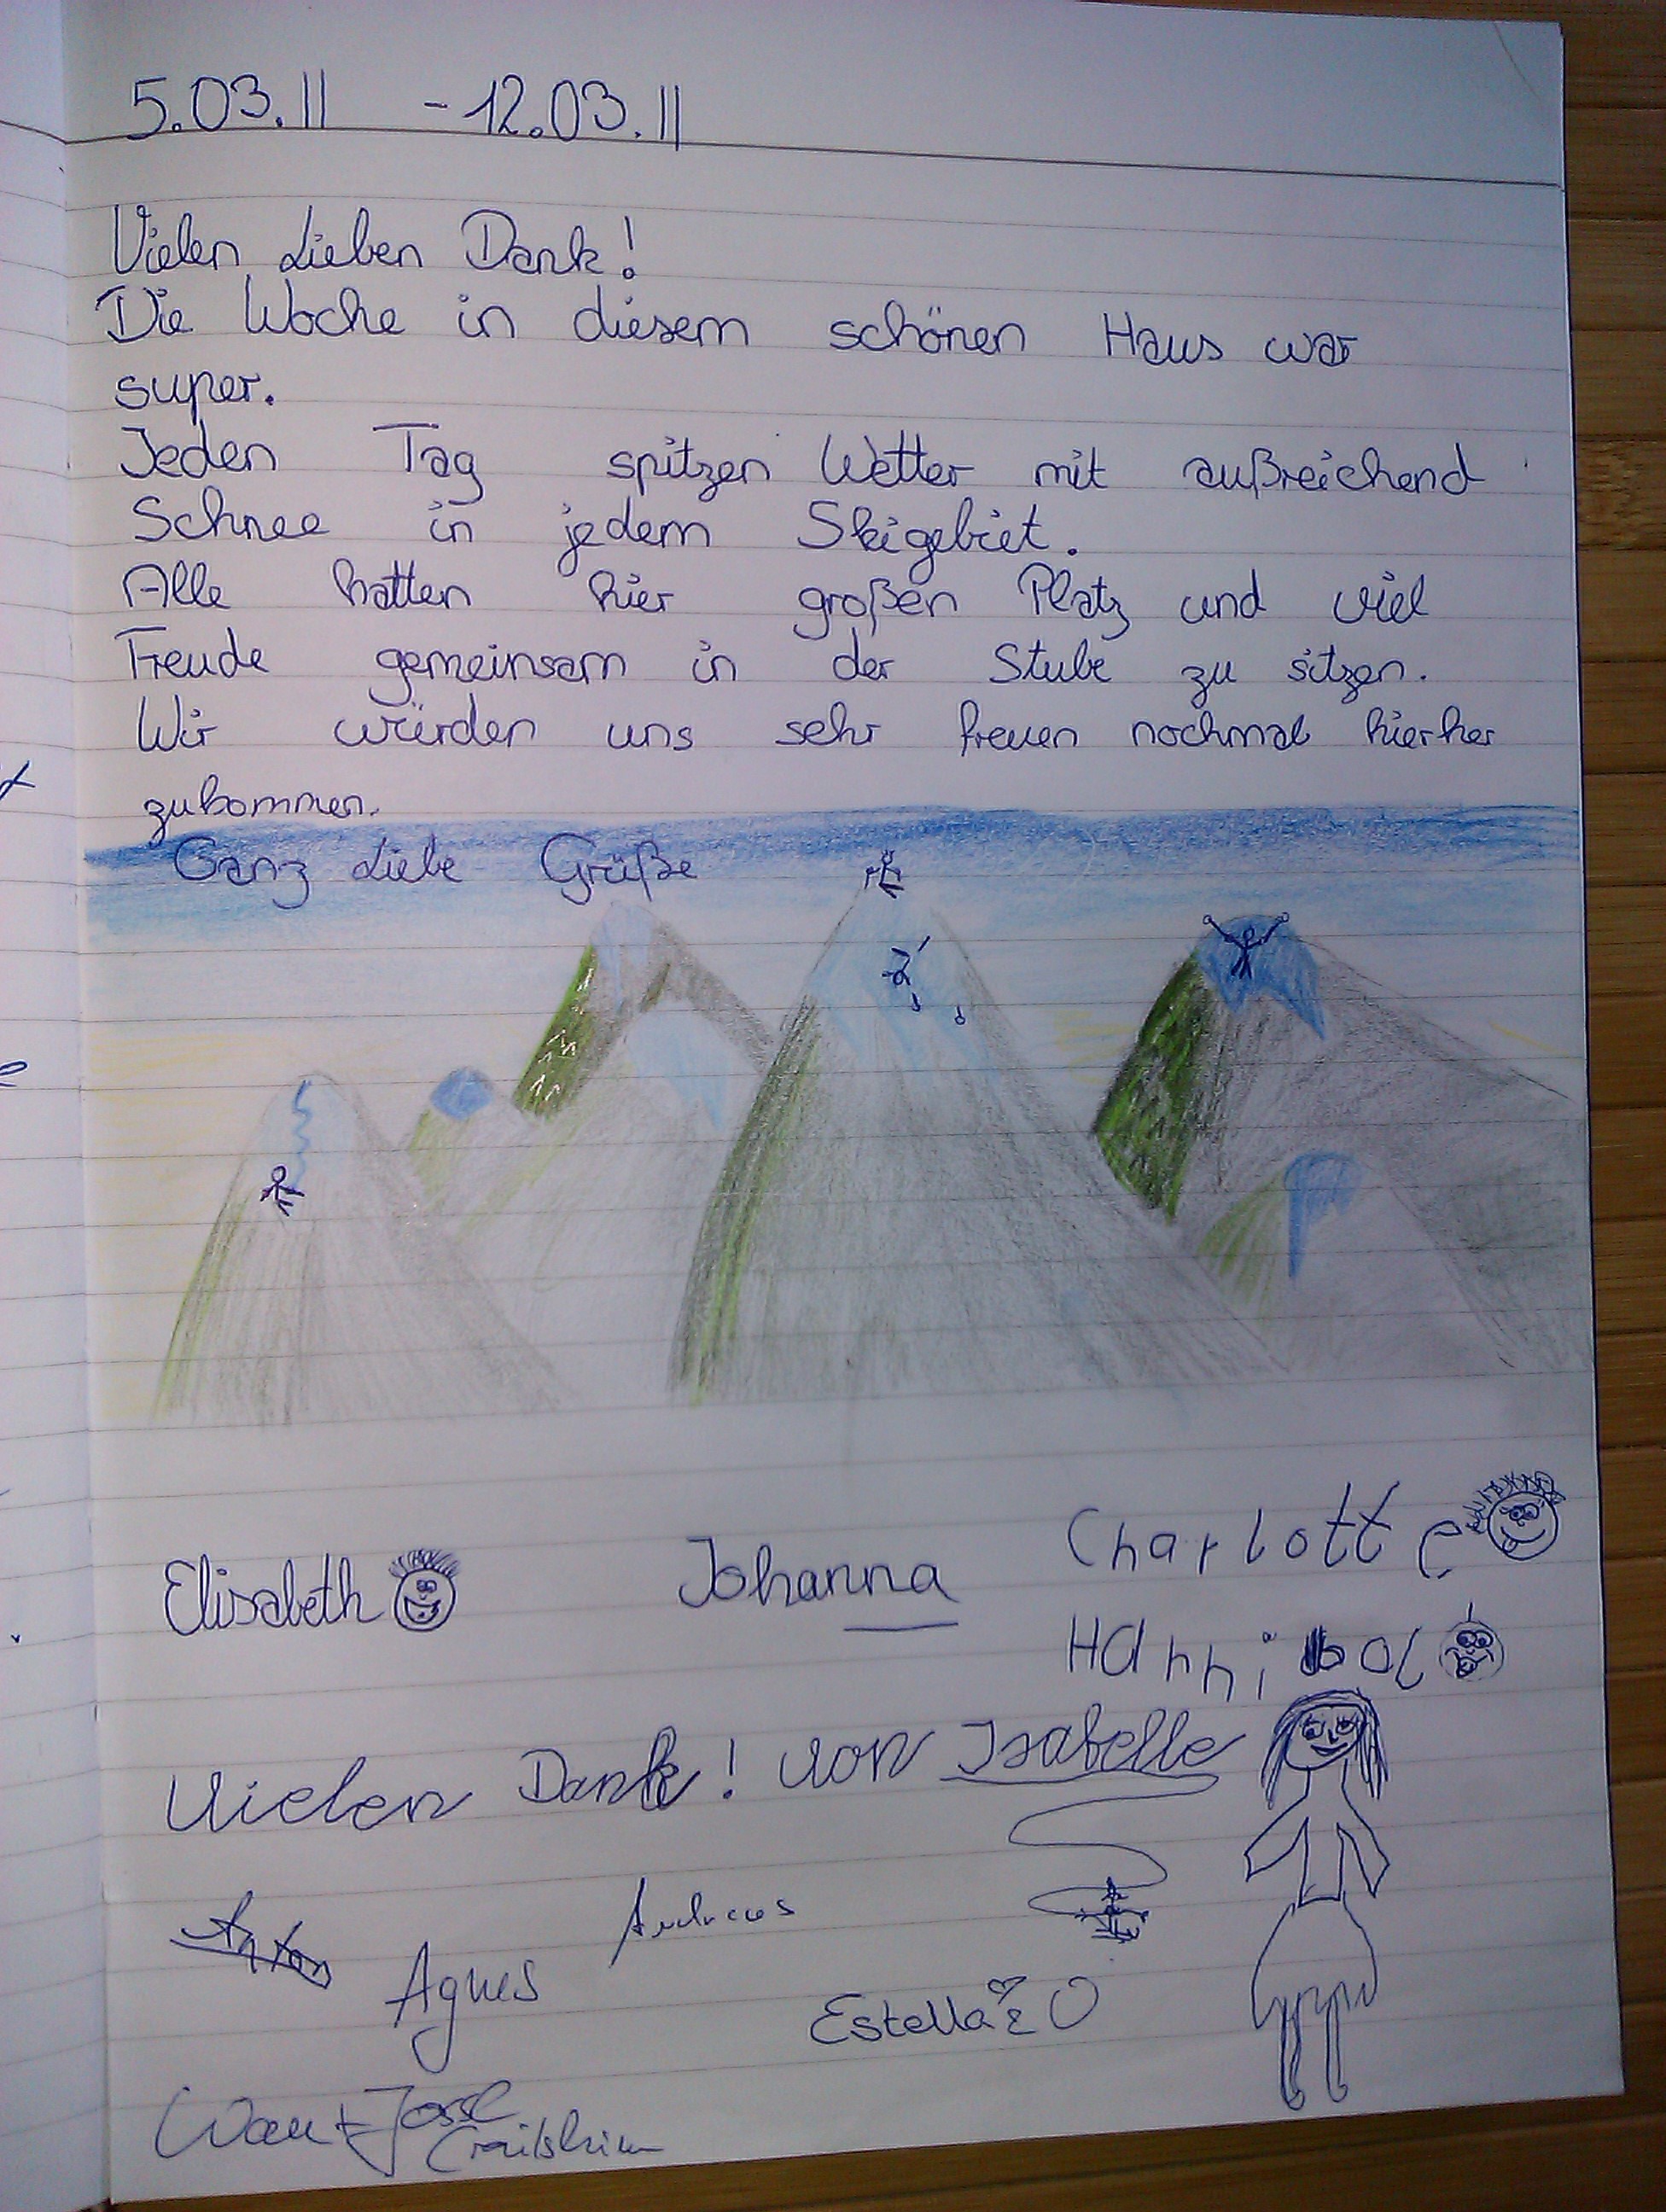 5.03.11 - 12.03.11
Vielen Lieben Dank!
Die Woche in diesem schönen Haus war
super.
Jeden Tag spitzen Wetter mit außreichend
Schnee in jedem Skigebiet.
Alle hatten hier großen Platz und viel
Freude gemeinsam in der Stube zu sitzen.
Wir würden uns sehr freuen nochmal hierher
zukommen.
Ganz Liebe Grüße
Elisabeth
Johanna
Charlotte
Hannibal
Vielen Dank! von Isabelle
Anton
Andreas
Agnes
Estella
Crailsheim